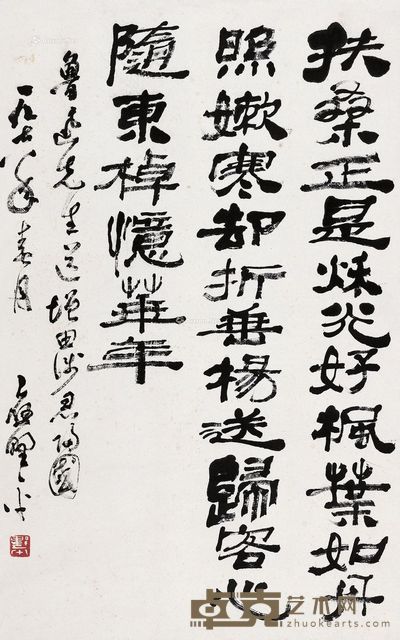 扶桑正是秋光好楓葉如丹
照嫩寒却折垂楊送歸客心
隨東棹憶華年
魯迅先生送增田涉君歸國
一九七八年春月 應野平
卓克艺术网
zhuokearts.com